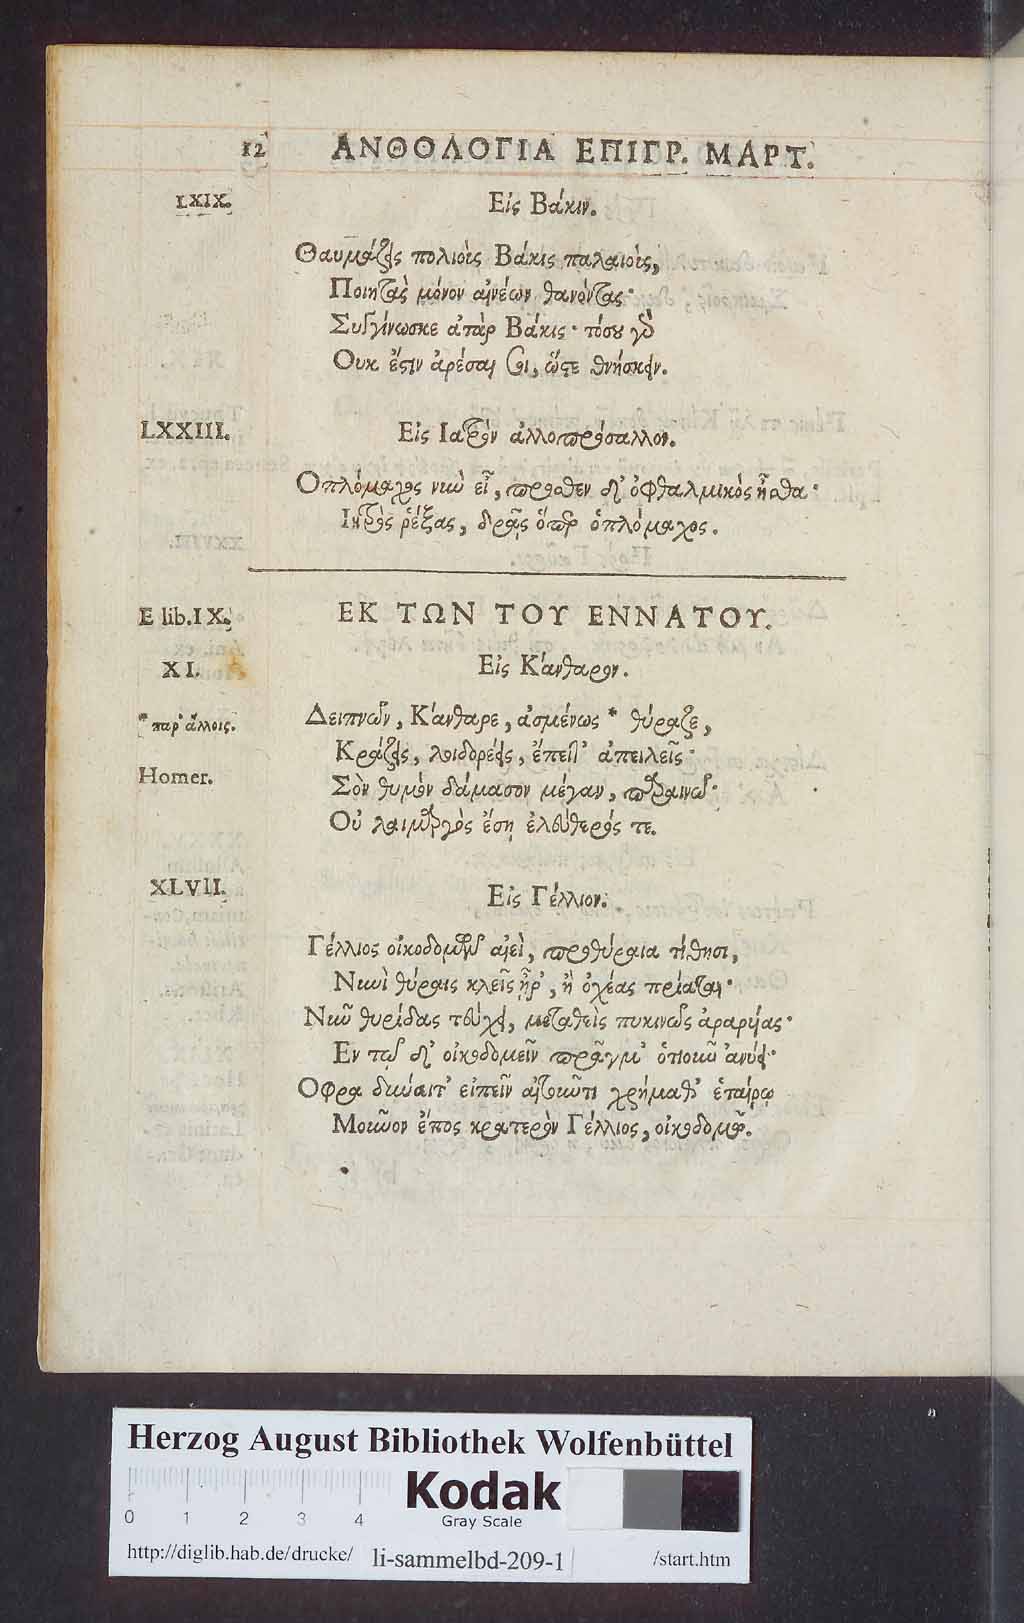 12 ΑΝΘΟΛΟΓΙΑ ΕΠΙΓΡ. ΜΑΡΤ.
LXIX. Εἰς Βάκιν.
Θαυμάζεις πολιοὶς Βάκις παλαιοὶς,
Ποιητὰς μόνον αἰνέων θανόντας·
Συγγίνωσκε ἀτὰρ Βάκις· τόσου γὰρ
Ουκ ἔστιν ἀρέσαι σοι, ὥστε θνήσκειν.
LXXIII. Εἰς Ιατρὸν ἀλλοπρόσαλλον.
Οπλόμαχος νιῦ εἶ, πρόσθεν δ' ὀφθαλμικὸς ἦσθα·
Ιητρὸς ῥέξας, δρᾷς ὅπερ ὁπλόμαχος.
E lib. IX. ΕΚ ΤΩΝ ΤΟΥ ΕΝΝΑΤΟΥ.
XI. Εἰς Κάνθαρον.
* παρ' ἄλλοις. Δειπνῶν, Κάνθαρε, ἀσμένως * θύραζε,
Κράζεις, λοιδορέεις, ἔπειτ' ἀπειλεῖς·
Homer. Σὸν θυμὸν δάμασον μέγαν, παραινῶ·
Οὐ λαιμαργὸς ἔσῃ ἐλεύθερός τε.
XLVII. Εἰς Γέλλιον.
Γέλλιος οἰκοδομῶν αἰεὶ, προθύραια τίθησι,
Νιωὶ θύραις κλεῖς ἦρ', ἢ ὀχέας πρίαται·
Νιῦ θυρίδας τεύχει, μεταθεὶς πυκινῶς ἀραρυίας·
Εν τῷ δ' οἰκοδομεῖν πρᾶγμ' ὁποιοῦν ἀνύει·
Οφρα δύναιτ' εἰπεῖν αἰτοῦντι χρήμαθ' ἑταίρῳ
Μοιῶον ἔπος κρατερὸν Γέλλιος, οἰκοδομῶ.
Herzog August Bibliothek Wolfenbüttel
Kodak
Gray Scale
0 1 2 3 4
http://diglib.hab.de/drucke/ li-sammelbd-209-1 /start.htm